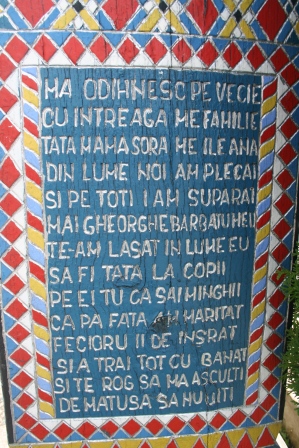 MA ODIHNESC PE VECIE
CU INTREAGA ME FAMILIE
TATA MAMA SORA ME ILEANA
DIN LUME NOI AM PLECAT
SI PE TOTI I AM SUPARAT
MAI GHEORGHE BARBATU
TE-AM LASAT IN LUME EU
SA FI TATA LA COPII
PE EI TU CA SAI MINGHII
CA PA FATA AM MARITAT
FECIORU II DE INSRAT
SI A TRAI TOT CU BANAT
SI TE ROG SA MA ASCULTI
DE MATUSA SA NU UITI